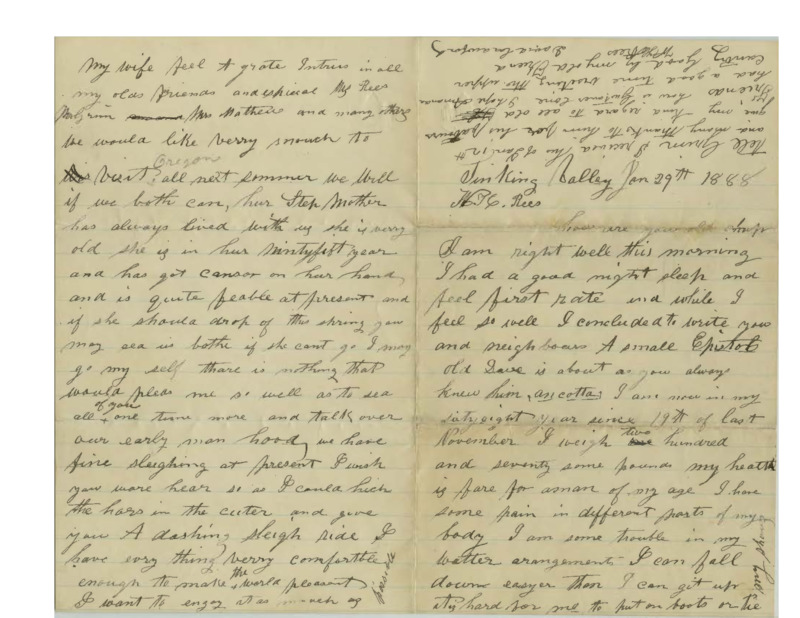 My wife feel A grate Intrus in all
my olds friends and espicial Mr Rees
Pilgrim Mrs Mathews and many others
we would like verry mouch to
Oregon
visit all next sommer we will
if we both can, hur Step Mother
has always lived with us she is verry
old she is in hur ninty first year
and has got cansor on hur hand
and is quite feable at present and
if she should drop of this spring you
may sea us bothe if she cant go I may
go my self thare is nothing that
would pleas me so well as to sea
all of you one time more and talk over
our early man hood, we have
fine sleighing at present I wish
you ware hear so as I could hich
the hors in the cuter and give
you A dashing sleigh side I
have evry thing verry comfortble
enough to make the world pleasant
I want to engoy at as mouch as
possible
Jin King Valley Jan 29th 1888
W. Rees
how are you old chap
I am right well this morning
I had a good night sleep and
feel first rate and while I
feel so well I concluded to write you
and neighbours A small Epistol
old Dave is about as you always
knew him, I am now in my
sixty eight year since 19th of last
November I weigh two hundred
and seventy some pounds my health
is fare for a man of my age I have
some pain in different parts of my
body I am some trouble in my
watter arangements I can fall
downe easyer than I can git up
its hard for me to put on boots or tie
my shoes
Tell I received his of Jan 12th
and many thanks to him for his pictures
give my kind regards to all old
Friends I hope Amanda
had a good time visiting the upper
Country Good by my old Friend
W Rees David Crawford